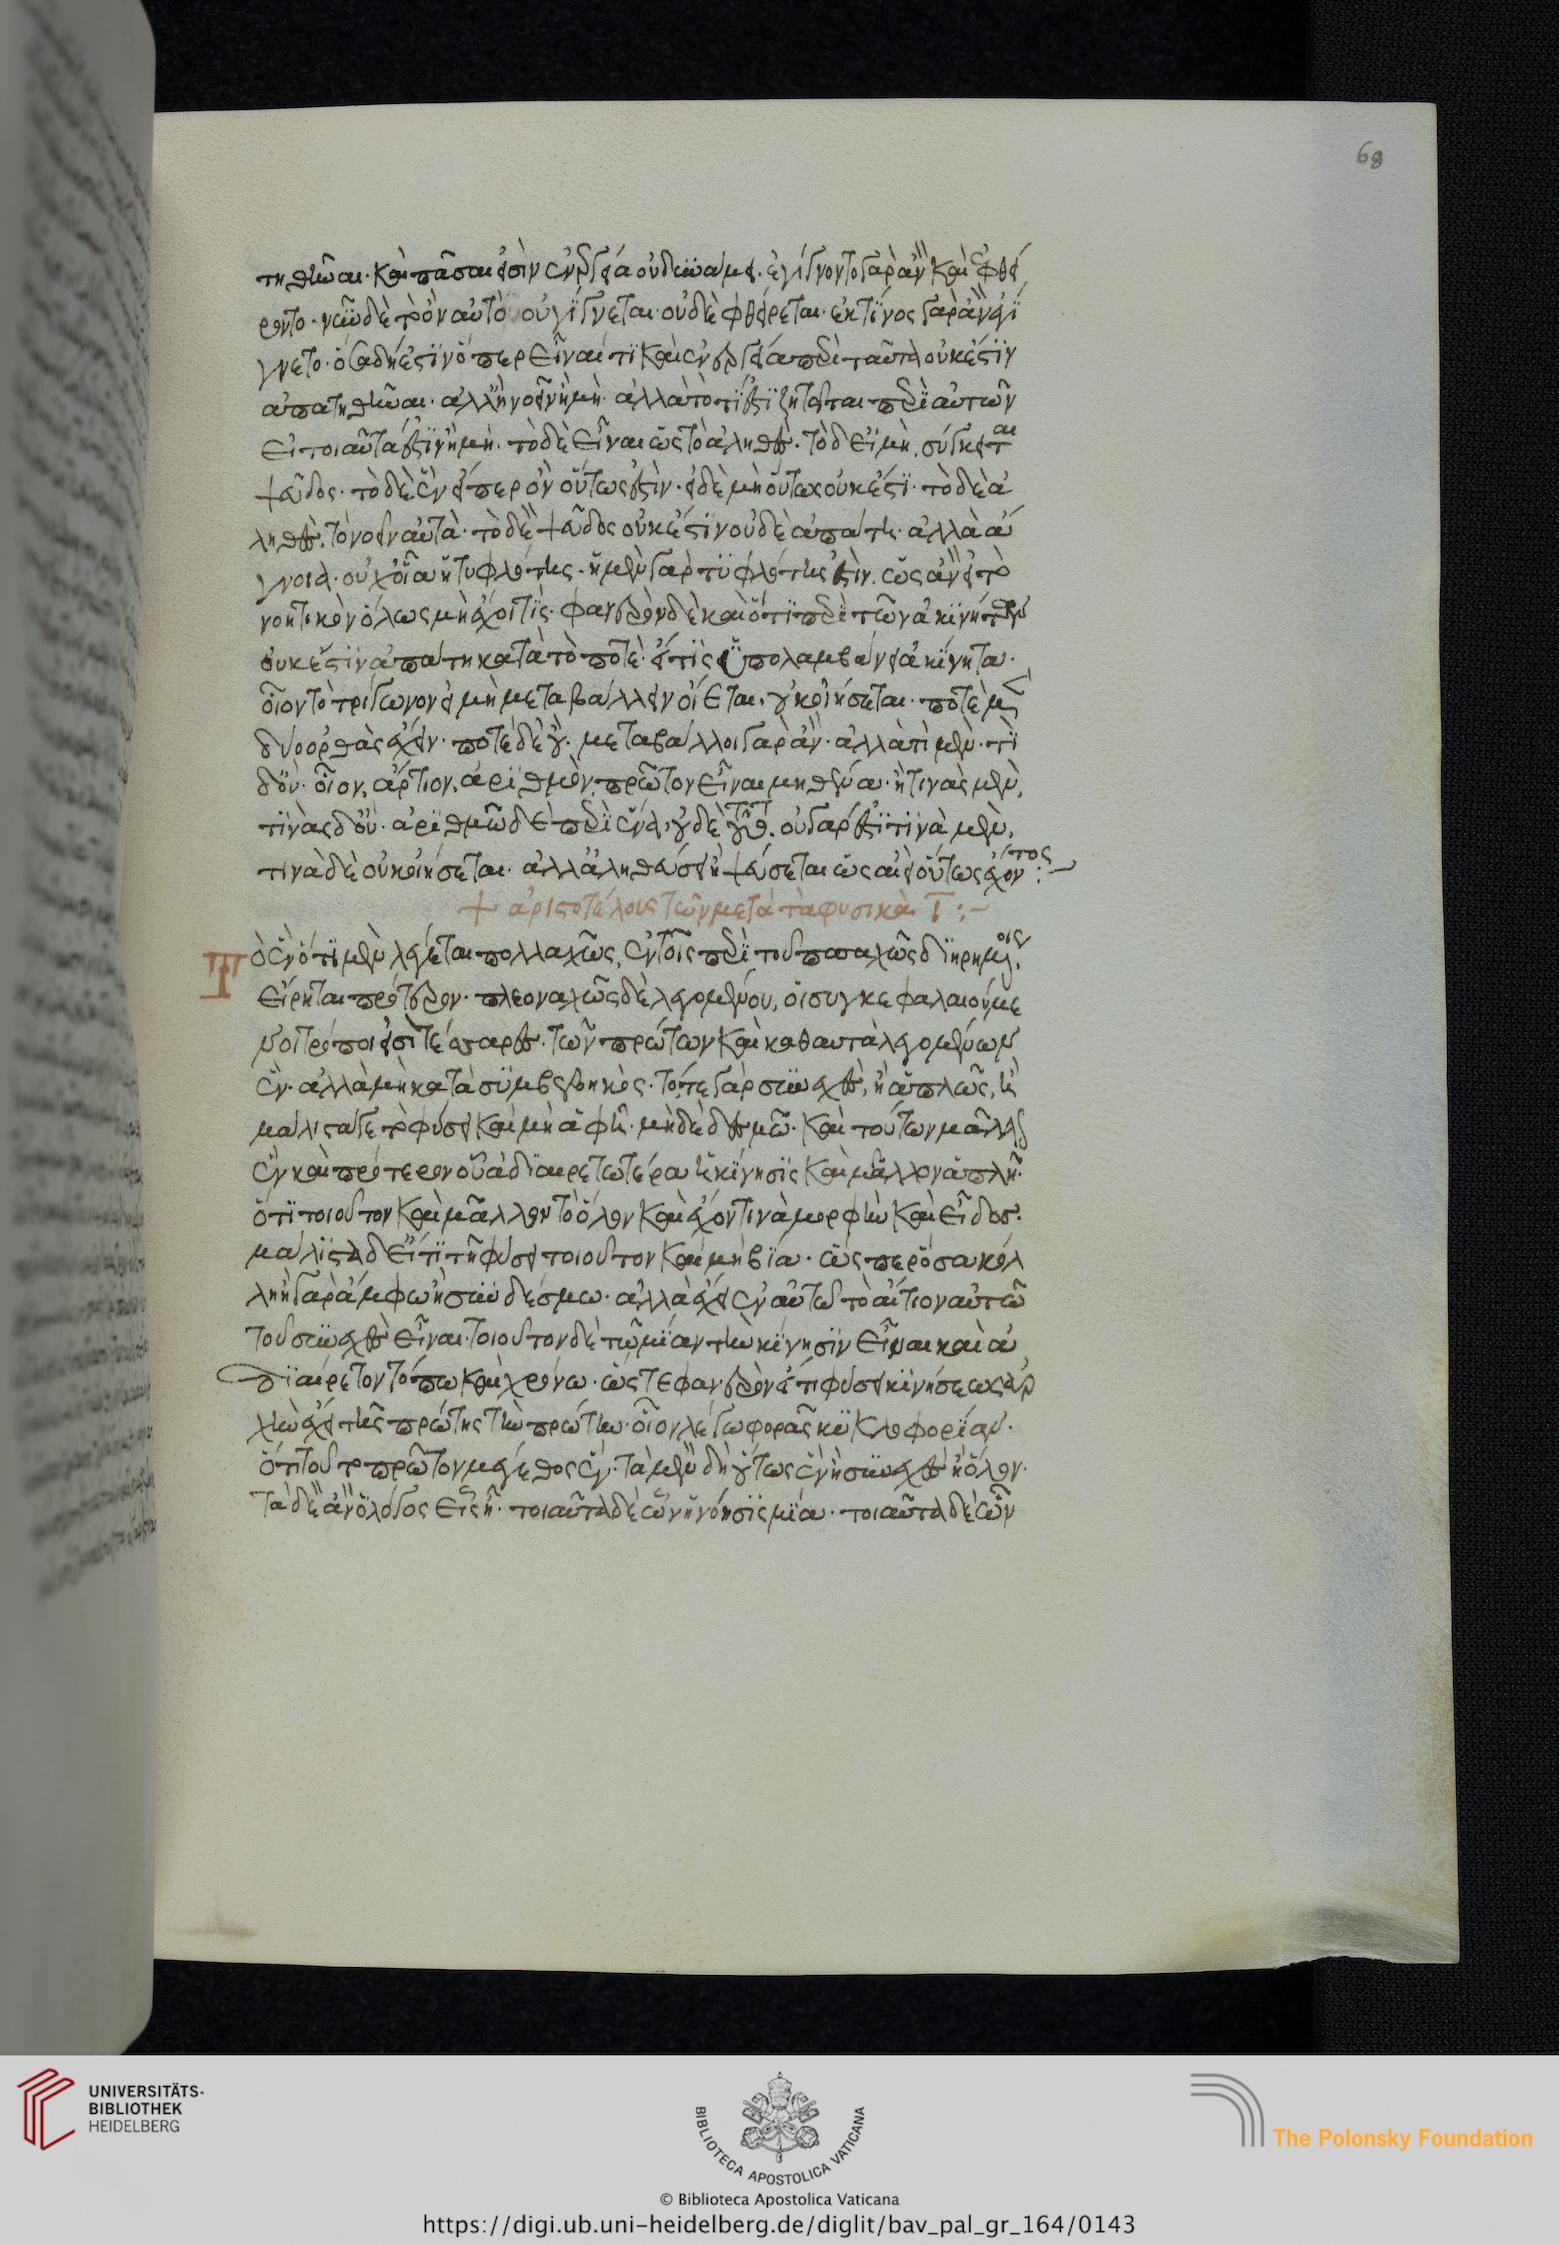 68
τηθῆναι· καὶ πᾶσαι εἰσὶν ἐνεργεία οὐ δυνάμει· ἐγίγνοντο γὰρ ἂν καὶ ἐφθεί
ροντο· νῦν δὲ τὸ ὂν αὐτὸ οὐ γίγνεται· οὐδὲ φθείρεται· ἐκ τίνος γὰρ ἂν ἐγί
γνετο· ὅσα δή ἐστὶν ὅπερ εἶναί τι καὶ ἐνεργεία περὶ ταῦτα οὐκ ἔστιν
ἀπατηθῆναι· ἀλλ' ἢ νοεῖν ἢ μὴ· ἀλλὰ τὸ τί ἐστὶ ζητεῖται περὶ αὐτῶν
εἰ τοιαῦτά ἐστὶν ἢ μή· τὸ δὲ εἶναι ὡς τὸ ἀληθὲς· τὸ δ εἰ μὴ σύγκειται
ψεῦδος· τὸ δὲ ἓν εἴπερ ὂν οὕτως ἐστὶν· εἰ δὲ μὴ οὕτως οὐκ ἔστι· τὸ δὲ ἀ
ληθὲς τὸ νοεῖν αὐτὰ· τὸ δὲ ψεῦδος οὐκ ἔστιν οὐδὲ ἀπάτη· ἀλλὰ ἄ
γνοια· οὐχ οἵα ἡ τυφλότης· ἡ μὲν γὰρ τυφλότης ἐστὶν ὡς ἂν εἰ τὸ
νοητικὸν ὅλως μὴ ἔχοι τὶς· φανερὸν δὲ καὶ ὅτι περὶ τῶν ἀκινήτων
οὐκ ἔστιν ἀπάτη κατὰ τὸ ποτὲ· εἴ τις ὑπολαμβάνει ἀκίνητα·
οἷον τὸ τρίγωνον εἰ μὴ μεταβάλλειν οἴεται, οὐκ οἰήσεται· ποτὲ μὲν
δύο ὀρθὰς ἔχειν· ποτὲ δὲ οὔ· μεταβάλλοι γὰρ ἄν· ἀλλὰ τὶ μὲν· τὶ
δ' οὔ· οἷον, ἄρτιον ἀριθμὸν πρῶτον εἶναι μηθένα· ἢ τινὰς μὲν,
τινὰς δ' οὔ· ἀριθμῶ δὲ περὶ ἕνα, οὐδὲ τοῦθ'· οὐ γὰρ ἔτι τινὰ μὲν,
τινὰ δὲ οὐκ οἰήσεται· ἀλλ' ἀληθεύσει ἢ ψεύσεται ὡς αἰεὶ οὕτως ἔχοντος :~
+ ἀριστοτέλους τῶν μετὰ τὰ φυσικὰ Ι :~
Τὸ ἓν ὅτι μὲν λέγεται πολλαχῶς, ἐν τοῖς περὶ τοῦ ποσαχῶς διῃρημένοις
εἴρηται πρότερον· πλεοναχῶς δὲ λεγομένου, οἱ συγκεφαλαιούμε
νοι τρόποι εἰσὶ τέσσαρες· τῶν πρώτων καὶ καθ αυτὰ λεγομένων
ἓν· ἀλλὰ μὴ κατὰ συμβεβηκός· τό τε γὰρ συνεχὲς, ἢ ἁπλῶς, ἢ
μάλιστά γε τὸ φύσει καὶ μὴ ἁφῇ· μηδὲ δεσμῶ· καὶ τούτων μᾶλλον
ἓν καὶ πρότερον οὗ ἀδιαιρετωτέρα ἡ κίνησις καὶ μᾶλλον ἁπλῆ·
ὅτι τοιοῦτον καὶ μᾶλλον τὸ ὅλον καὶ ἔχον τινὰ μορφὴν καὶ εἶδος·
μάλιστα δ εἴ τι τῆ φύσει τοιοῦτον καὶ μὴ βία· ὥσπερ ὅσα κόλ
λη ἢ γὰρ ἄμφω ἢ συνδέσμω· ἀλλὰ ἔχει ἐν αὑτῶ τὸ αἴτιον αὐτῶ
τοῦ συνεχὲς εἶναι· τοιοῦτον δὲ τῶ μίαν τὴν κίνησιν εἶναι καὶ ἀ
διαίρετον τόπω καὶ χρόνω· ὥστε φανερὸν εἴ τι φύσει κινήσεως ἀρ
χὴν ἔχει τῆς πρώτης τὴν πρώτην· οἷον λέγω φορᾶς κυκλοφορίαν·
ὅτι τοῦτο πρῶτον μέγεθος ἓν· τὰ μὲν δὴ οὕτως ἓν ἢ συνεχὲς ἢ ὅλον·
τὰ δὲ ἂν ὁ λόγος εἷς ἦ· τοιαῦτα δὲ ὧν ἡ νόησις μία· τοιαῦτα δὲ ὧν
UNIVERSITÄTS-
BIBLIOTHEK
HEIDELBERG
BIBLIOTECA APOSTOLICA VATICANA
© Biblioteca Apostolica Vaticana
The Polonsky Foundation
https://digi.ub.uni-heidelberg.de/diglit/bav_pal_gr_164/0143